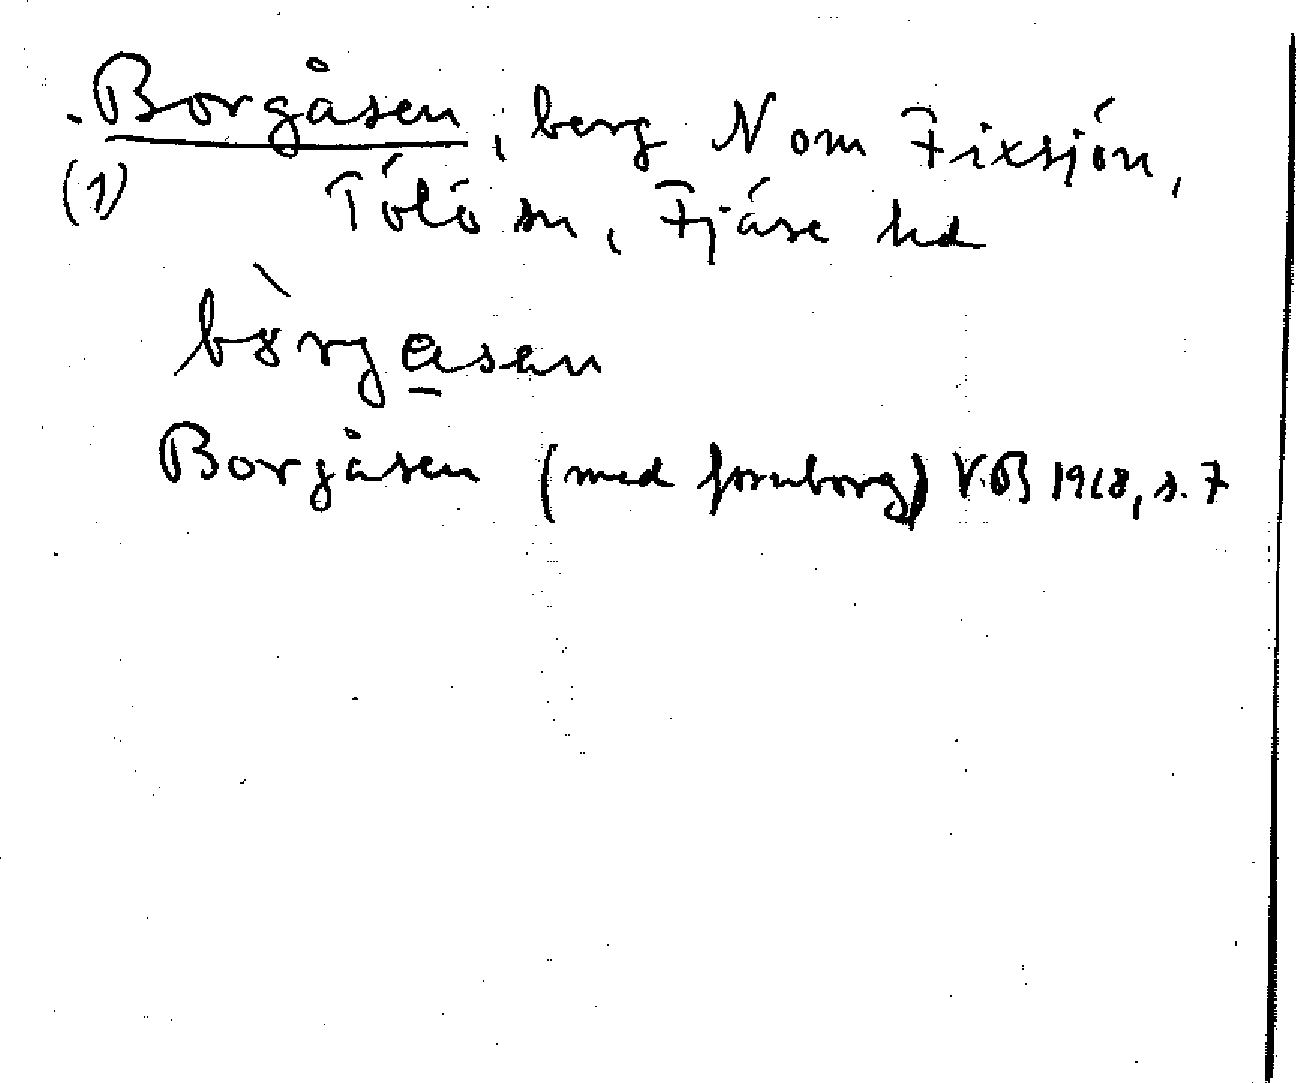 Borgåsen, berg N om Fixsjön,
(1) Tölö sn, Fjäre hd
bòrgasen
Borgåsen (med fornborg) V.B 1968, s. 7